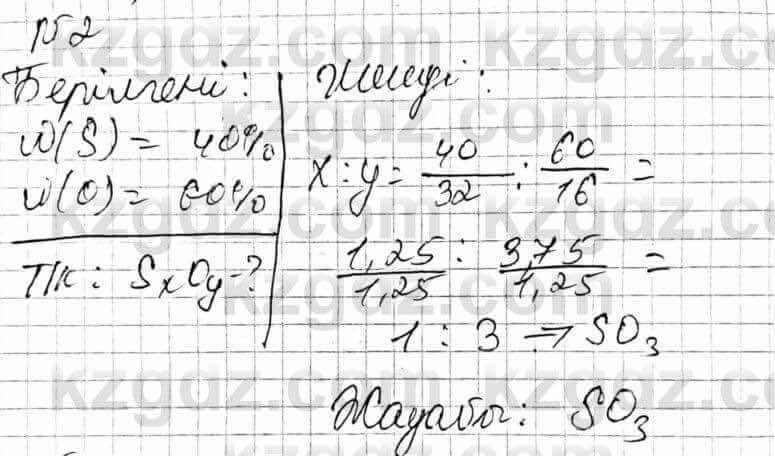 №2
Берілгені:
W(S) = 40%
W(O) = 60%
ТК: SxOy-?
Шешуі:
x : y = 40/32 : 60/16 =
1,25/1,25 : 3,75/1,25 =
1 : 3 ⇒ SO₃
Жауабы: SO₃
kzgdz.com